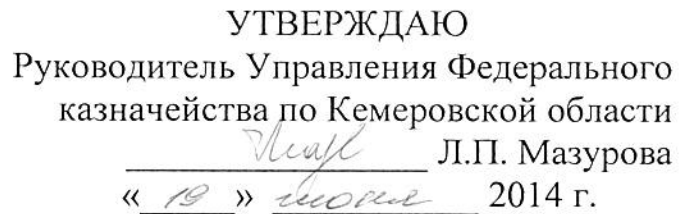 УТВЕРЖДАЮ
Руководитель Управления Федерального
казначейства по Кемеровской области
Л.П. Мазурова
« 19 » 2014 г.